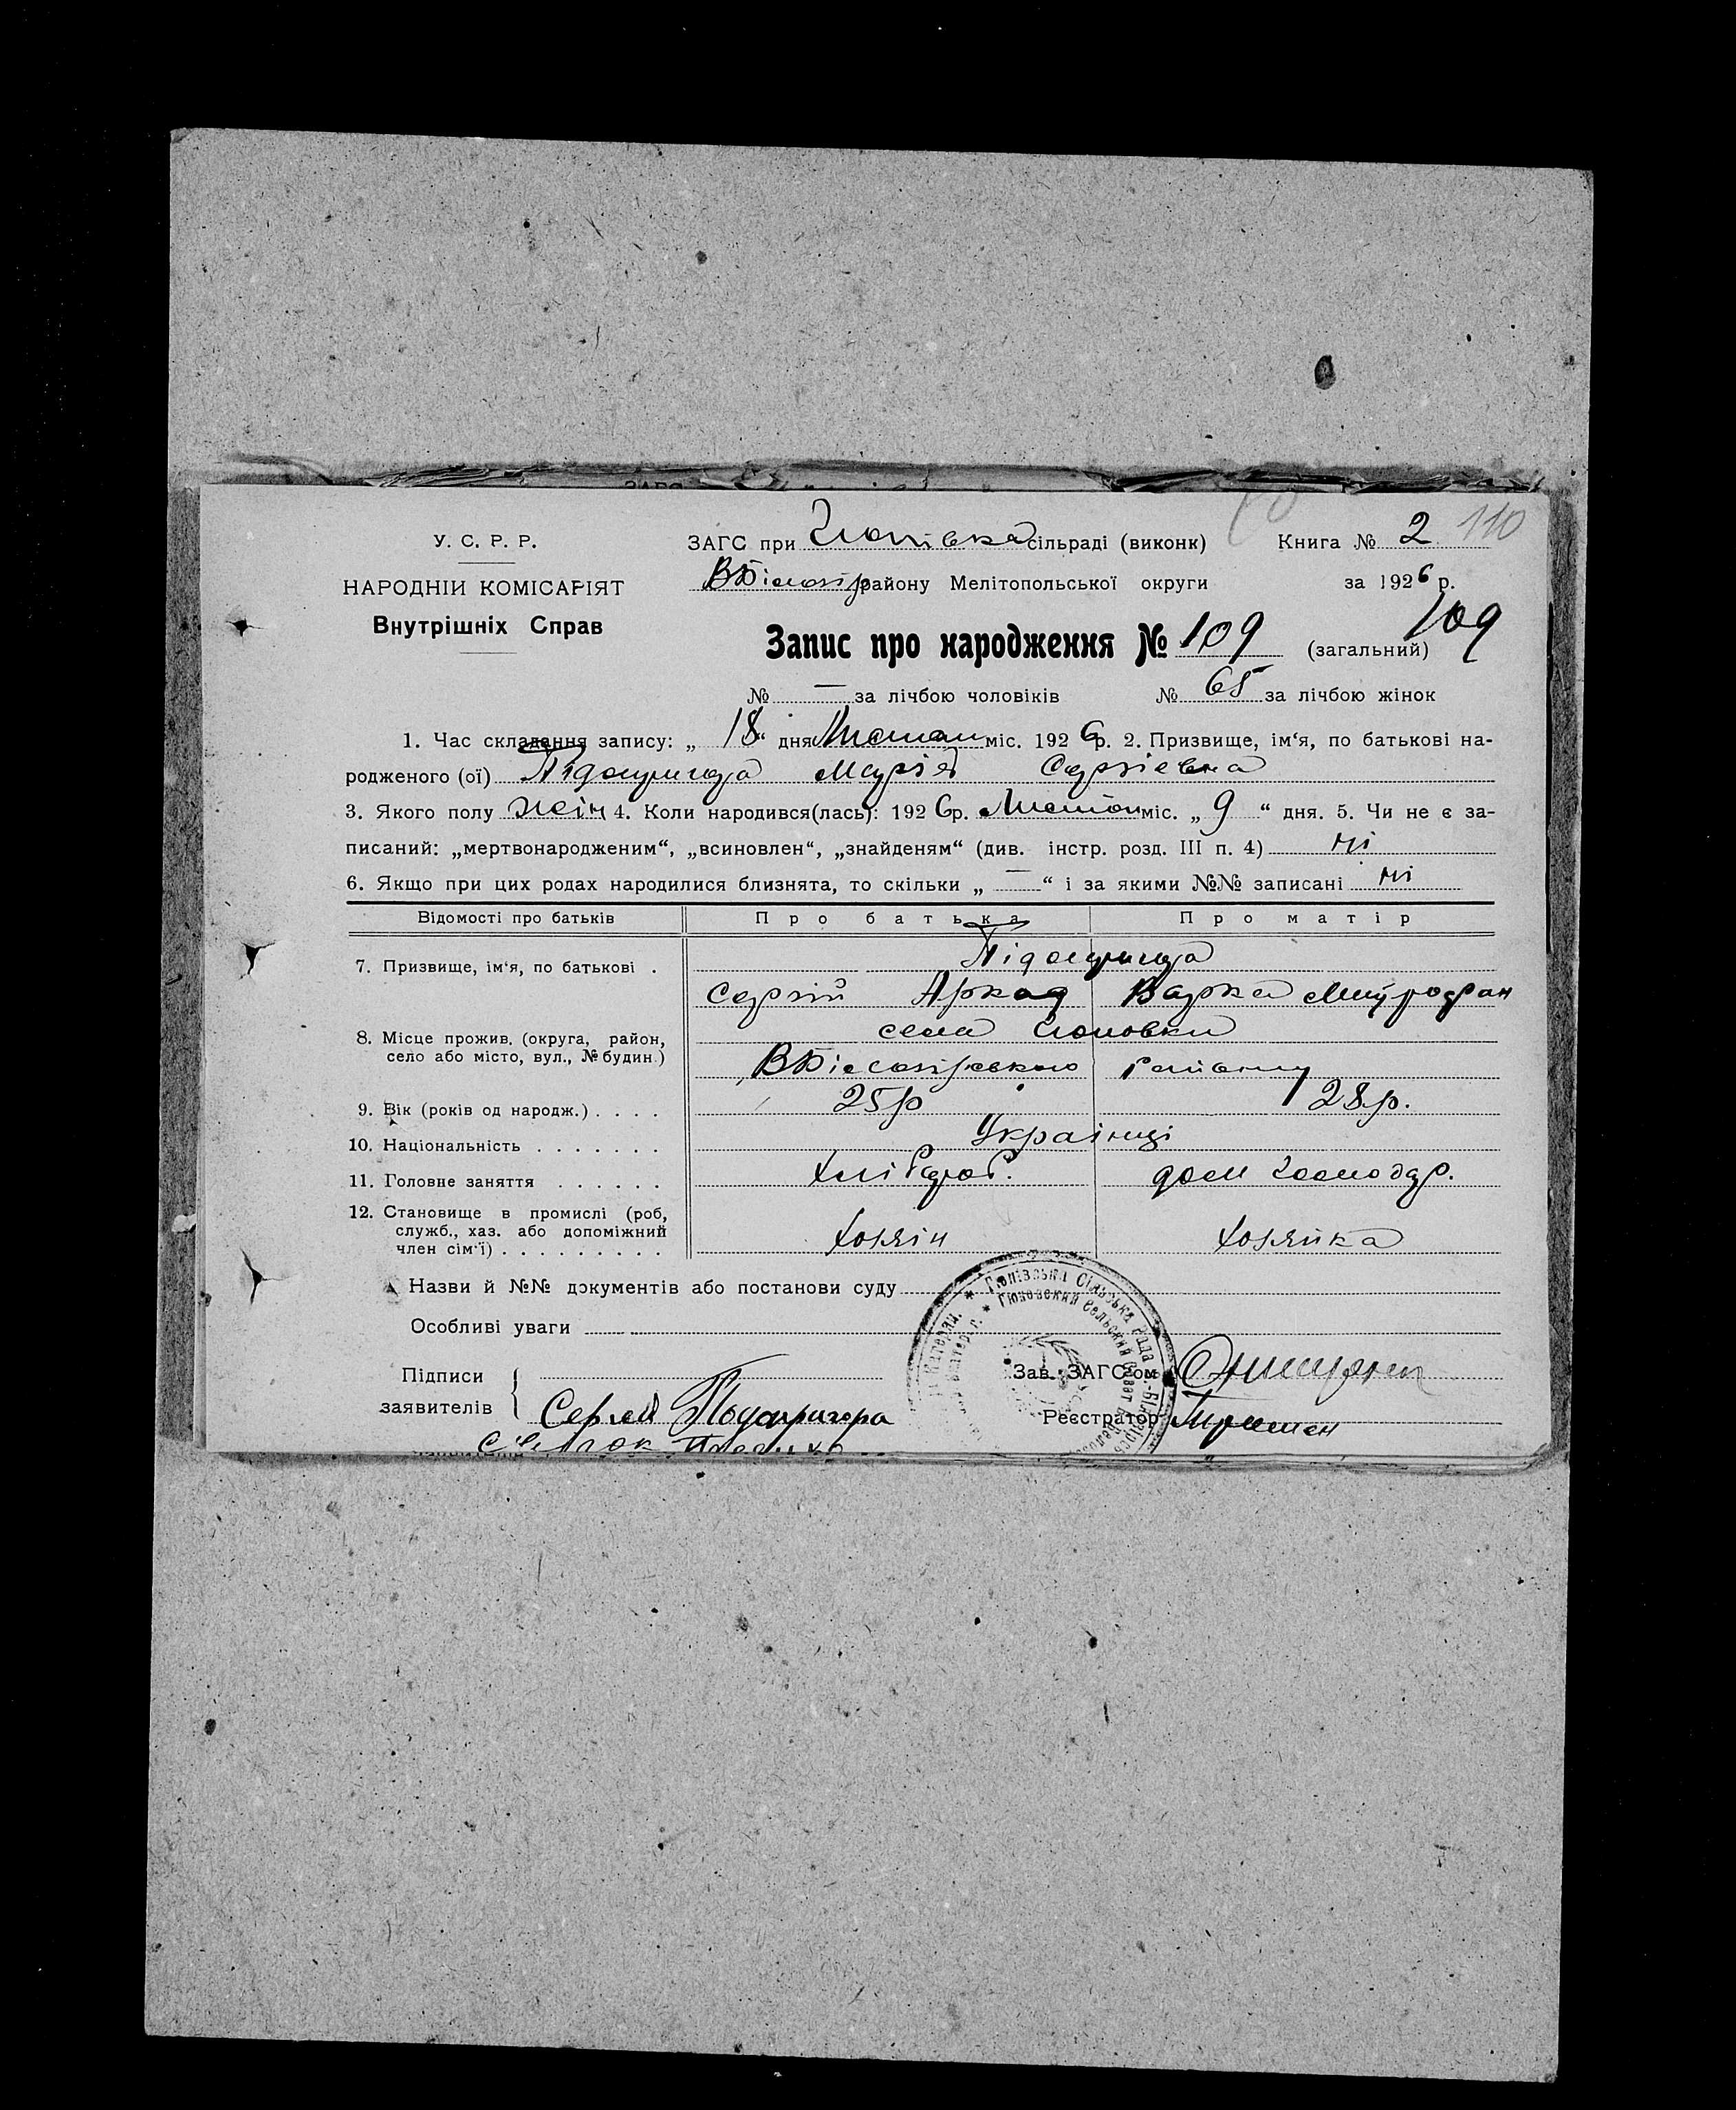 У. С. Р. Р.
НАРОДНІЙ КОМІСАРІЯТ
Внутрішніх Справ
ЗАГС при Гюнівка сільраді (виконк)
Книга № 2 110
ВБілозір району Мелітопольської округи
за 1926 р.
Запис про народження № 109 (загальний) 109
№ — за лічбою чоловіків № 65 за лічбою жінок
1. Час складання запису: „ 18 “ дня Листоп міс. 1926 р. 2. Призвище, ім‘я, по батькові на-
родженого (ої) Підопригора Марія Сергієвна
3. Якого полу жін 4. Коли народився(лась): 1926 р. Листоп міс. „ 9 “ дня. 5. Чи не є за-
писаний: „мертвонародженим“, „всиновлен“, „знайденям“ (див. інстр. розд. III п. 4) ні
6. Якщо при цих родах народилися близнята, то скільки „ — “ і за якими №№ записані ні
Відомості про батьків Про батька Про матір
7. Призвище, ім‘я, по батькові . Підопригора
Сергій Аркад Варка Митрофан
8. Місце прожив. (округа, район, село або місто, вул., № будин.) села Гюновки
ВБілозірського району
9. Вік (років од народж.) . . . . 25 р 28 р.
10. Національність . . . . . . . Українці
11. Головне заняття . . . . . . Хлібороб. дом господар.
12. Становище в промислі (роб, служб., хаз. або допоміжний член сім‘ї) . . . . . . . . . Хозяін Хозяйка
Назви й №№ документів або постанови суду
Особливі уваги
Гюнівська Сільська Рада
Гюновский Сельский Совет
Підписи
заявителів
Сергей Подопригора
Зав. ЗАГС‘ом
Реєстратор